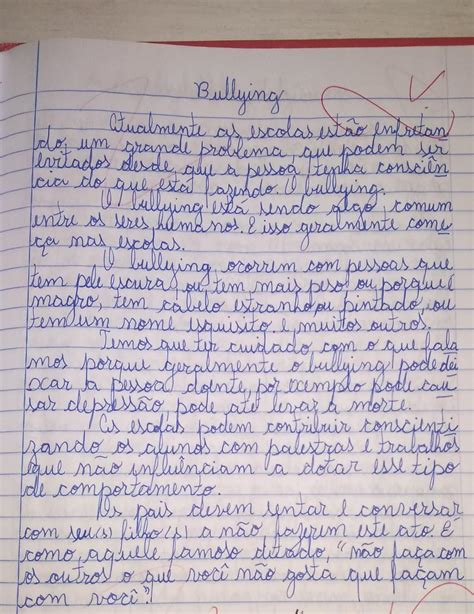 Bullying
Atualmente as escolas estão enfretan
do, um grande problema, que podem ser
evitados desde que a pessoa tenha consciên
cia do que está fazendo. O bullying.
O bullying está sendo algo comum
entre os seres humanos. E isso geralmente come
ça nas escolas.
O bullying, ocorrem com pessoas que
tem pele escura, ou tem mais peso ou porque é
magro, tem cabelo estranho ou pintado, ou
tem um nome esquisito e muitos outros.
Temos que ter cuidado com o que fala
mos porque geralmente o bullying pode dei
xar a pessoa doente, por exemplo pode cau
sar depressão pode até levar a morte.
As escolas podem contribuir conscienti
zando os alunos com palestras e trabalhos
que não influenciam a dotar esse tipo
de comportamento.
Os pais devem sentar e conversar
com seu(s) filho(s) a não fazerem este ato. E
como, aquele famoso ditado, "não faça com
os outros o que você não gosta que façam
com você".